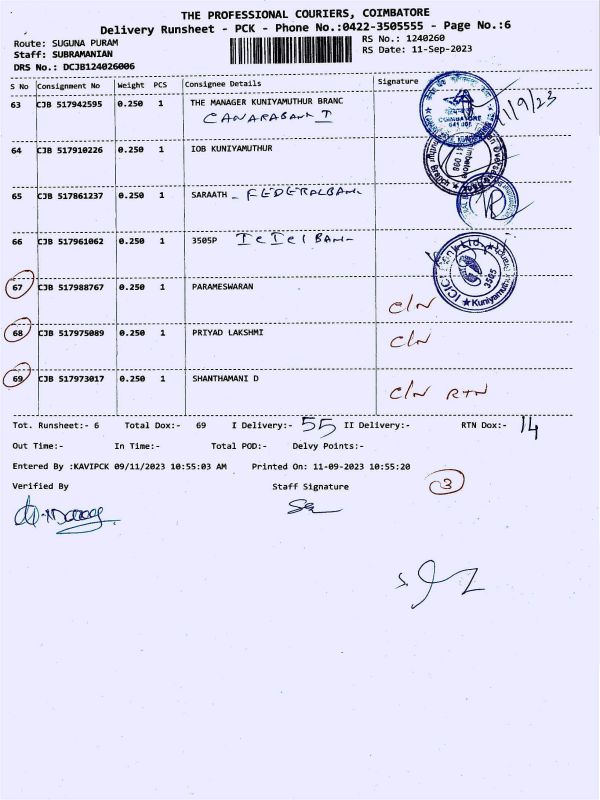 THE PROFESSIONAL COURIERS, COIMBATORE
Delivery Runsheet - PCK - Phone No.:0422-3505555 - Page No.:6
Route: SUGUNA PURAM RS No.: 1240260
Staff: SUBRAMANIAN RS Date: 11-Sep-2023
DRS No.: DCJB124026006
S No Consignment No Weight PCS Consignee Details Signature
63 CJB 517942595 0.250 1 THE MANAGER KUNIYAMUTHUR BRANC
CANARABANK
11/9/23
COIMBATORE
641 008
64 CJB 517910226 0.250 1 IOB KUNIYAMUTHUR
65 CJB 517861237 0.250 1 SARAATH - FEDERALBANK
66 CJB 517961062 0.250 1 3505P ICICI BANK
ICICI Bank Ltd.
3505
Kuniyamuthur Branch
67 CJB 517988767 0.250 1 PARAMESWARAN C/N
68 CJB 517975089 0.250 1 PRIYAD LAKSHMI C/N
69 CJB 517973017 0.250 1 SHANTHAMANI D C/N RTN
Tot. Runsheet:- 6 Total Dox:- 69 I Delivery:- 55 II Delivery:- RTN Dox:- 14
Out Time:- In Time:- Total POD:- Delvy Points:-
Entered By :KAVIPCK 09/11/2023 10:55:03 AM Printed On: 11-09-2023 10:55:20
Verified By Staff Signature 3